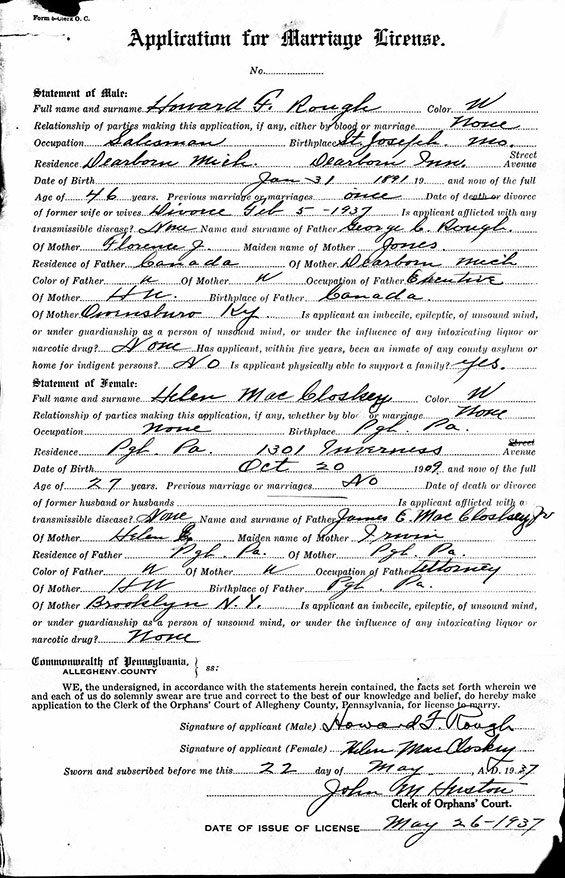 Form 5-Clerk O. C.
Application for Marriage License.
No.
Statement of Male:
Full name and surname Howard F. Rough Color W
Relationship of parties making this application, if any, either by blood or marriage None
Occupation Salesman Birthplace St. Joseph. Mo.
Residence Dearborn Mich. Dearborn Inn. Street Avenue
Date of Birth Jan-31 1891 19 and now of the full
Age of 46 years. Previous marriage or marriages once Date of death or divorce
of former wife or wives Divorce Feb 5-1937 Is applicant afflicted with any
transmissible disease? None Name and surname of Father George C. Rough.
Of Mother Florence J. Maiden name of Mother Jones
Residence of Father Canada Of Mother Dearborn Mich
Color of Father W Of Mother W Occupation of Father Executive
Of Mother H W. Birthplace of Father Canada.
Of Mother Owensburo Ky. Is applicant an imbecile, epileptic, of unsound mind,
or under guardianship as a person of unsound mind, or under the influence of any intoxicating liquor or
narcotic drug? None Has applicant, within five years, been an inmate of any county asylum or
home for indigent persons? No Is applicant physically able to support a family? yes.
Statement of Female:
Full name and surname Helen Mac Closkey Color W
Relationship of parties making this application, if any, whether by blo or marriage None
Occupation None Birthplace Pgh. Pa.
Residence Pgh. Pa. 1301 Inverness Street Avenue
Date of Birth Oct 20 1909 and now of the full
Age of 27 years. Previous marriage or marriages No Date of death or divorce
of former husband or husbands Is applicant afflicted with a
transmissible disease? None Name and surname of Father James E. Mac Closkey, Jr
Of Mother Helen Maiden name of Mother Irwin
Residence of Father Pgh. Pa. Of Mother Pgh. Pa.
Color of Father W Of Mother W Occupation of Father Attorney
Of Mother HW Birthplace of Father Pgh. Pa.
Of Mother Brooklyn N.Y. Is applicant an imbecile, epileptic, of unsound mind,
or under guardianship as a person of unsound mind, or under the influence of any intoxicating liquor or
narcotic drug? None
Commonwealth of Pennsylvania,
ALLEGHENY COUNTY ss:
WE, the undersigned, in accordance with the statements herein contained, the facts set forth wherein we
and each of us do solemnly swear are true and correct to the best of our knowledge and belief, do hereby make
application to the Clerk of the Orphans' Court of Allegheny County, Pennsylvania, for license to marry.
Signature of applicant (Male) Howard F. Rough
Signature of applicant (Female) Helen MacCloskey
Sworn and subscribed before me this 22 day of May, A. D. 1937
John M Huston
Clerk of Orphans' Court.
DATE OF ISSUE OF LICENSE May 26-1937